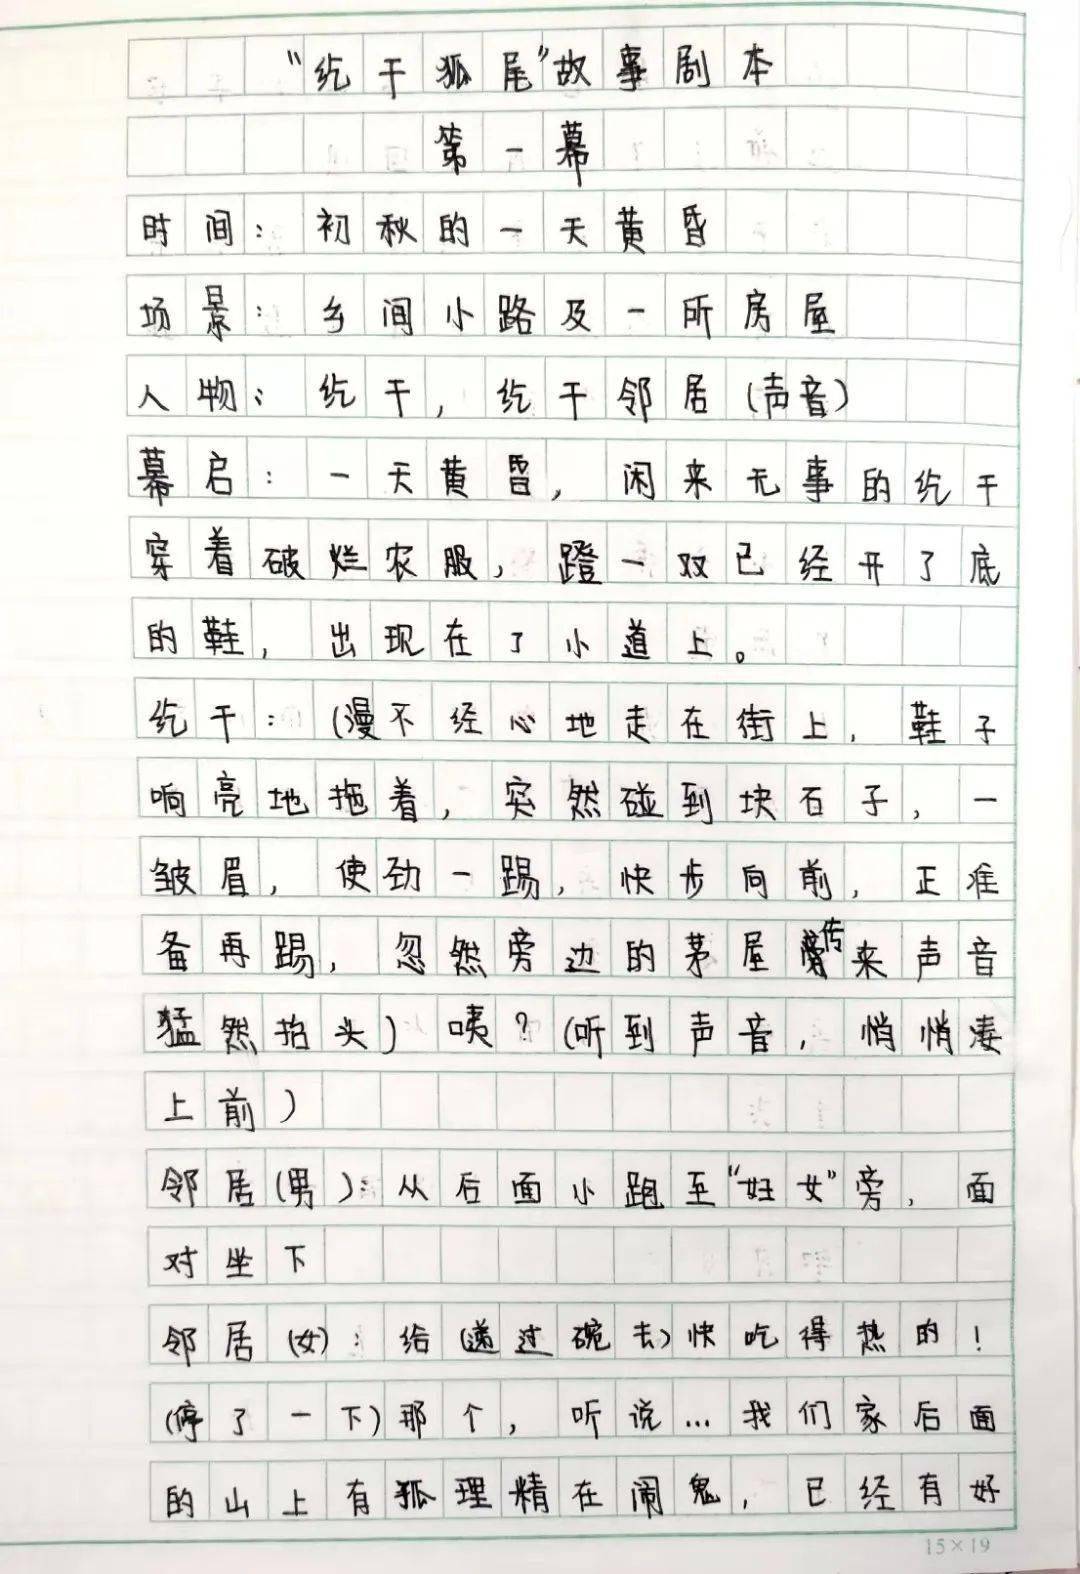 “纥干狐尾”故事剧本
第一幕
时间：初秋的一天黄昏
场景：乡间小路及一所房屋
人物：纥干，纥干邻居(声音)
幕启：一天黄昏，闲来无事的纥干
穿着破烂衣服，蹬一双已经开了底
的鞋，出现在了小道上。
纥干：(漫不经心地走在街上，鞋子
响亮地拖着，突然碰到块石子，一
皱眉，使劲一踢，快步向前，正准
备再踢，忽然旁边的茅屋传来声音
猛然抬头)咦？(听到声音，悄悄凑
上前)
邻居(男)：从后面小跑至“妇女”旁，面
对坐下
邻居(女)：给(递过碗去)快吃得热的！
(停了一下)那个，听说…我们家后面
的山上有狐理精在闹鬼，已经有好
15×19